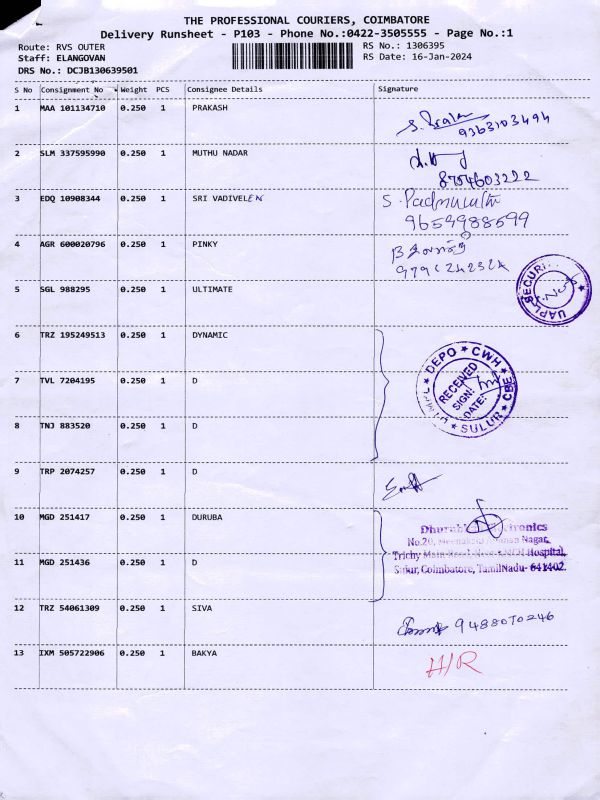 THE PROFESSIONAL COURIERS, COIMBATORE
Delivery Runsheet - P103 - Phone No.:0422-3505555 - Page No.:1
Route: RVS OUTER RS No.: 1306395
Staff: ELANGOVAN RS Date: 16-Jan-2024
DRS No.: DCJB130639501
S No Consignment No Weight PCS Consignee Details Signature
1 MAA 101134710 0.250 1 PRAKASH
9363103494
2 SLM 337595990 0.250 1 MUTHU NADAR
8754603222
3 EDQ 10908344 0.250 1 SRI VADIVELEN
9659988599
4 AGR 600020796 0.250 1 PINKY
5 SGL 988295 0.250 1 ULTIMATE
UAPL SECURI
6 TRZ 195249513 0.250 1 DYNAMIC
DEPO ★ CWH ★ CBE ★ SULUR
RECEIVED
SIGN:
DATE:
7 TVL 7204195 0.250 1 D
8 TNJ 883520 0.250 1 D
9 TRP 2074257 0.250 1 D
10 MGD 251417 0.250 1 DURUBA
No.20, Nagar,
11 MGD 251436 0.250 1 D
Trichy Main Road Hospital,
Sulur, Coimbatore, TamilNadu- 641402.
12 TRZ 54061309 0.250 1 SIVA
9488070246
13 IXM 505722906 0.250 1 BAKYA
H/R